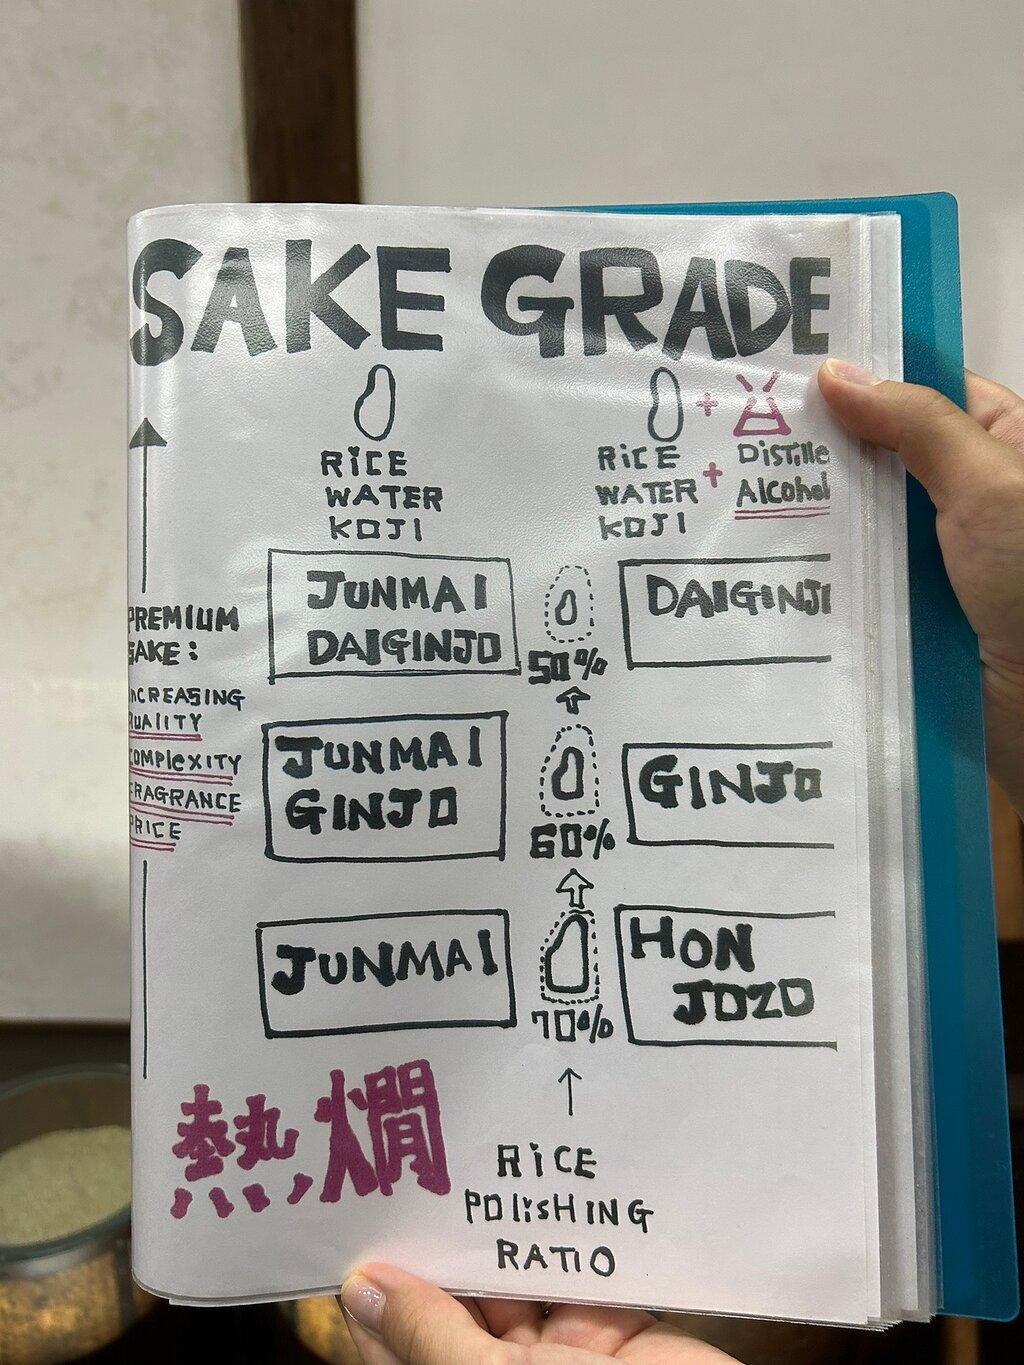 SAKE GRADE
RICE
WATER
KOJI
RICE
WATER
KOJI
+
+
Distille
Alcohol
PREMIUM
SAKE:
INCREASING
QUALITY
COMPLEXITY
FRAGRANCE
PRICE
JUNMAI
DAIGINJO
50%
DAIGINJ
JUNMAI
GINJO
60%
GINJO
JUNMAI
70%
HON
JOZO
熱燗
RICE
POLISHING
RATIO